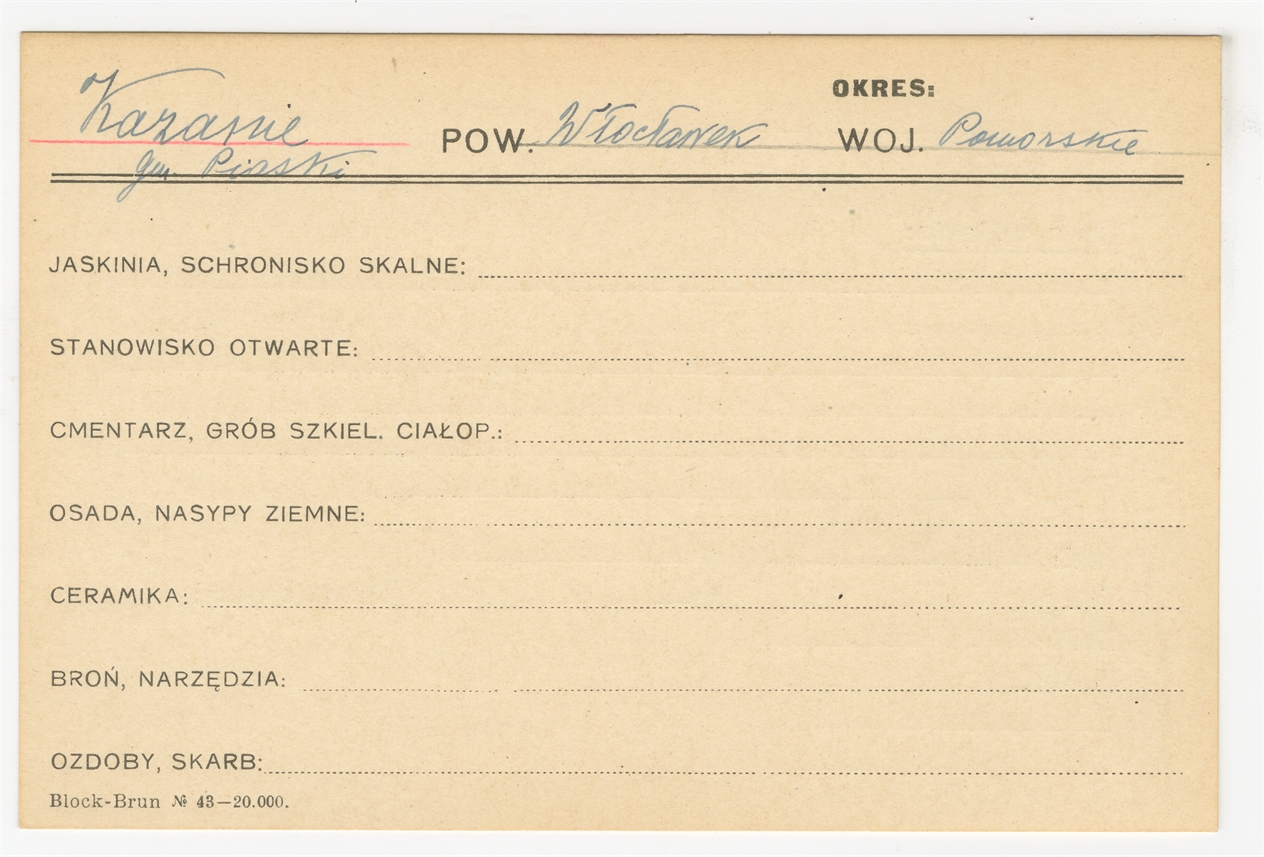 OKRES:
Kazanie POW. Włocławek WOJ. Pomorskie
gm. Piaski
JASKINIA, SCHRONISKO SKALNE:
STANOWISKO OTWARTE:
CMENTARZ, GRÓB SZKIEL. CIAŁOP.:
OSADA, NASYPY ZIEMNE:
CERAMIKA:
BROŃ, NARZĘDZIA:
OZDOBY, SKARB:
Block-Brun № 43—20.000.